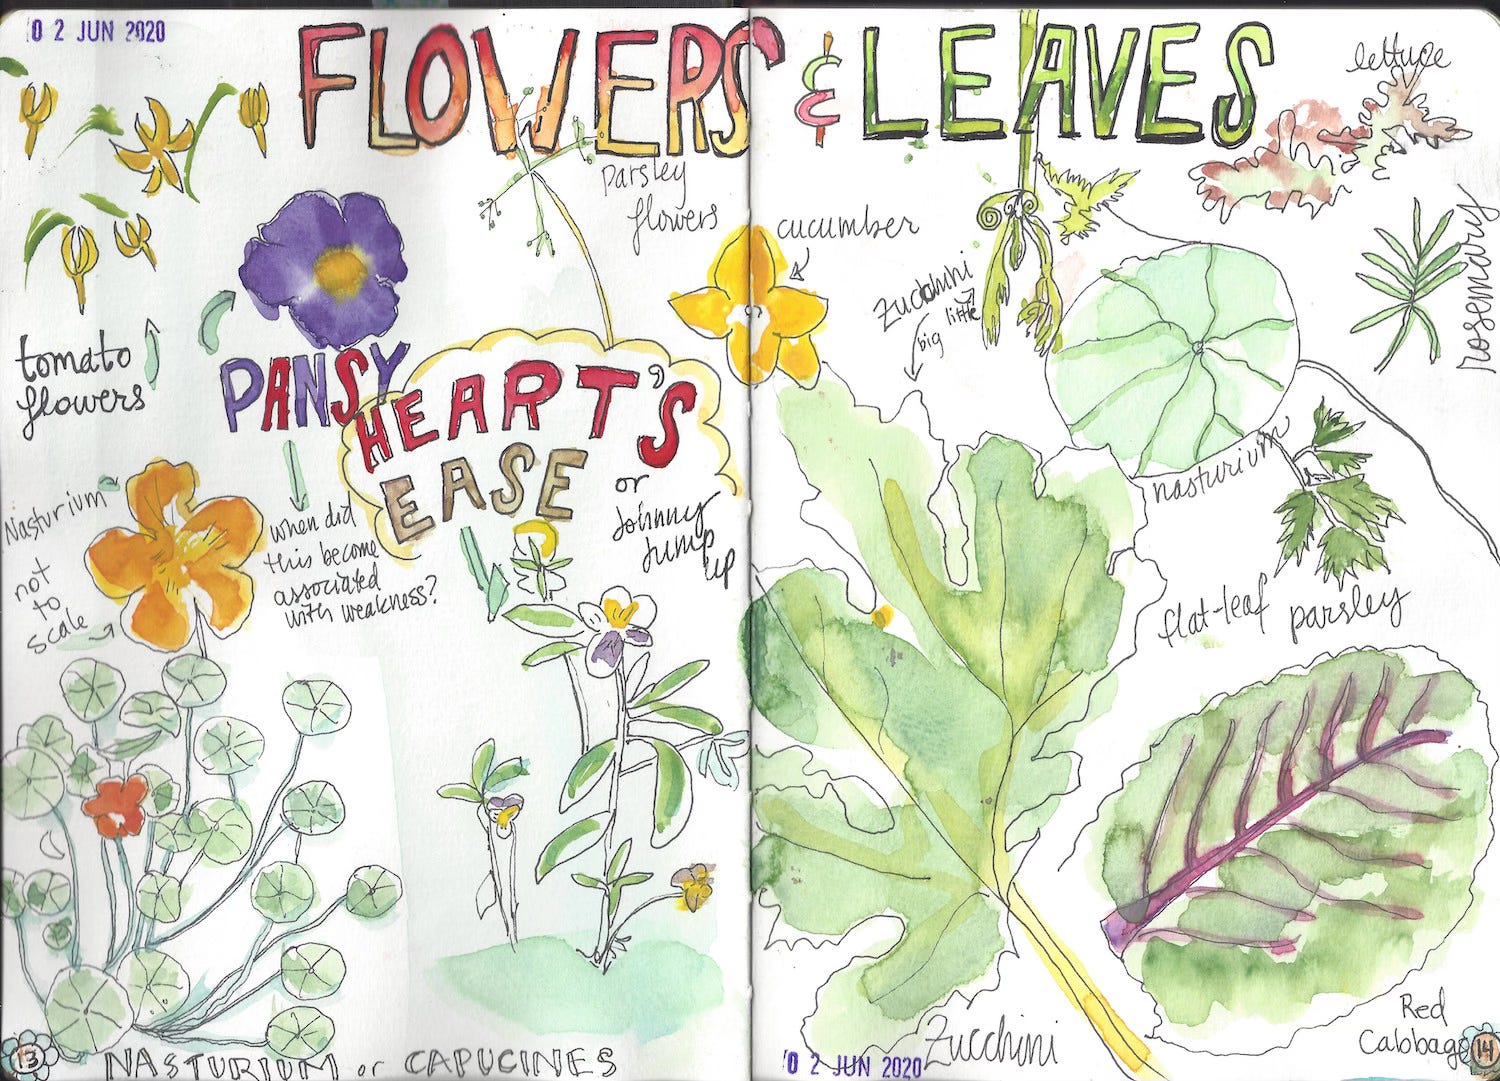 02 JUN 2020
FLOWERS & LEAVES
lettuce
parsley
flowers
cucumber
zucchini
little
big
rosemary
tomato
flowers
PANSY
HEART'S
EASE
or
Johnny
Jump
up
Nasturium
not
to
scale
when did
this become
associated
with weakness?
nasturium
flat-leaf parsley
Zucchini
Red
Cabbage
13
NASTURIUM or CAPUCINES
02 JUN 2020
14